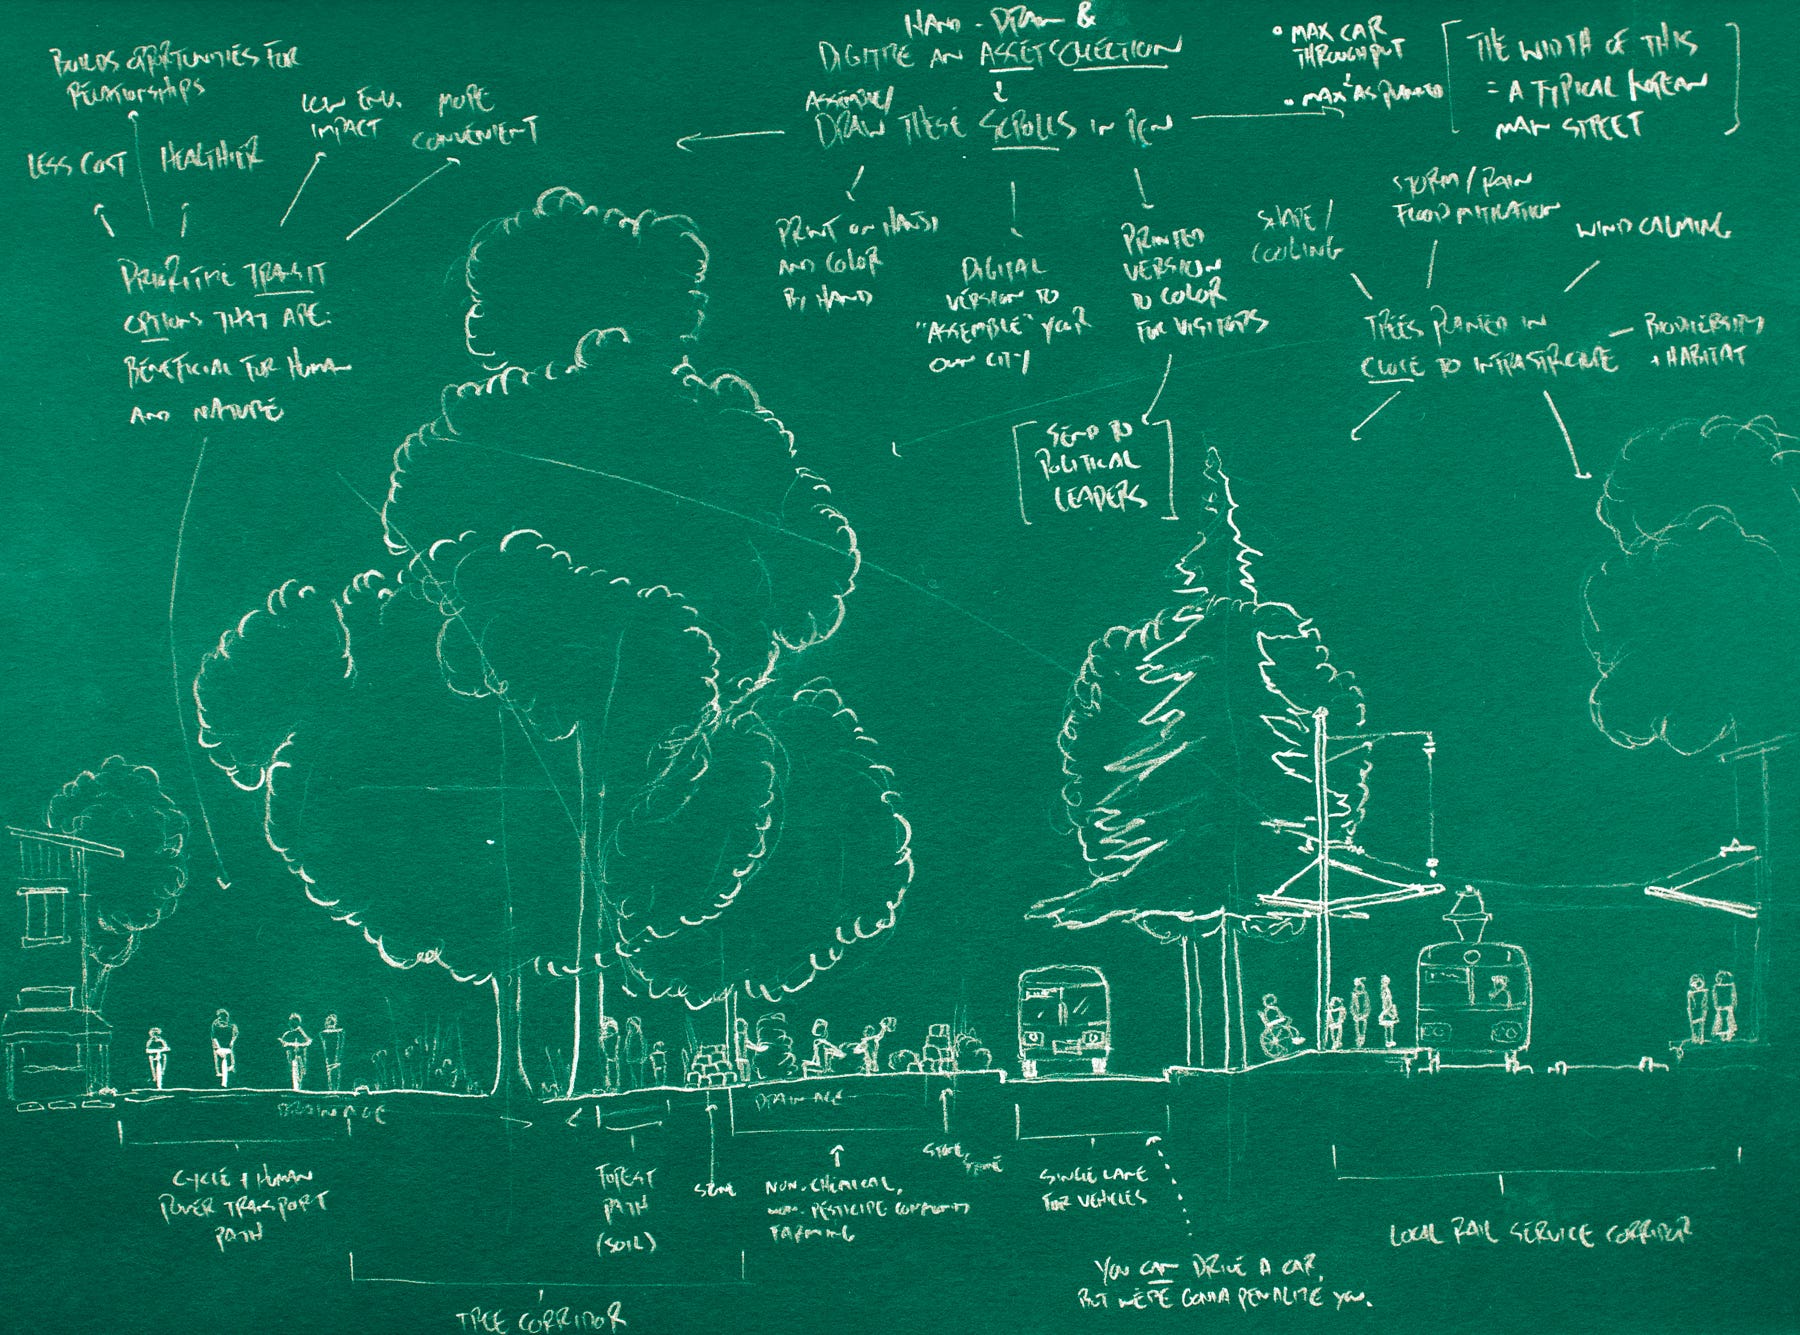 BUILDS OPPORTUNITIES FOR
RELATIONSHIPS
LESS COST
HEALTHIER
LOW ENV.
IMPACT
MORE
CONVENIENT
PRIORITIZE TRANSIT
OPTIONS THAT ARE:
BENEFICIAL FOR HUMAN
AND NATURE
HAND-DRAW &
DIGITIZE AN ASSET COLLECTION
ASSEMBLE/
DRAW THESE SCROLLS IN PEN
• MAX CAR
THROUGHPUT
• MAX AS PLANTED
THE WIDTH OF THIS
= A TYPICAL KOREAN
MAIN STREET
PRINT ON HANJI
AND COLOR
BY HAND
DIGITAL
VERSION TO
"ASSEMBLE" YOUR
OWN CITY
PRINTED
VERSION
TO COLOR
FOR VISITORS
SEND TO
POLITICAL
LEADERS
SHADE/
COOLING
STORM/RAIN
FLOOD MITIGATION
WIND CALMING
TREES PLANTED IN
CLOSE TO INFRASTRUCTURE
BIODIVERSITY
+ HABITAT
DRAINAGE
DRAINAGE
CYCLE + HUMAN
POWER TRANSPORT
PATH
FOREST
PATH
(SOIL)
STONE
NON-CHEMICAL,
NON-PESTICIDE COMMUNITY
FARMING
STONE
SINGLE LANE
FOR VEHICLES
LOCAL RAIL SERVICE CORRIDOR
YOU CAN DRIVE A CAR,
BUT WE'RE GONNA PENALIZE YOU.
TREE CORRIDOR